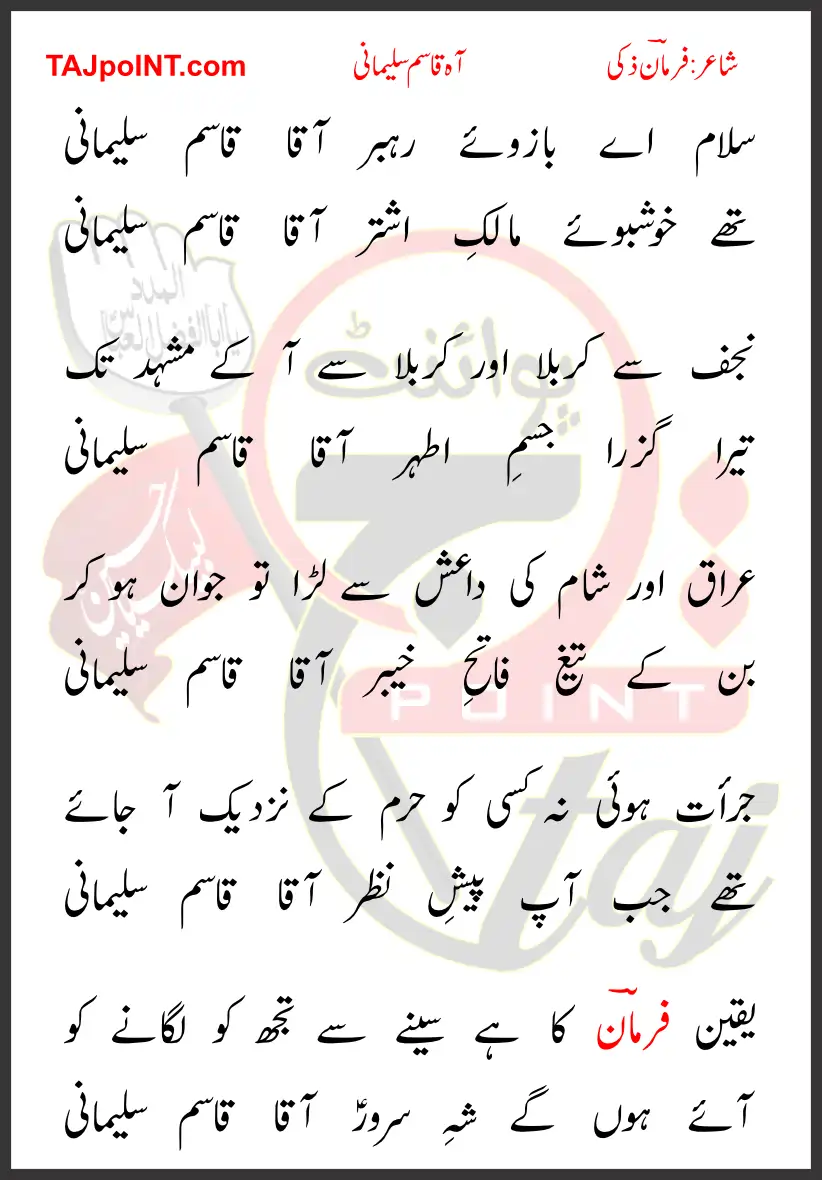 شاعر: فرمانؔ ذکی    آہ قاسم سلیمانی    TAJpoINT.com
سلام اے بازوئے رہبر آقا قاسم سلیمانی
تھے خوشبوئے مالکِ اشتر آقا قاسم سلیمانی
نجف سے کربلا اور کربلا سے آ کے مشہد تک
تیرا گزرا جسمِ اطہر آقا قاسم سلیمانی
عراق اور شام کی داعش سے لڑا تو جوان ہو کر
بن کے تیغِ فاتحِ خیبر آقا قاسم سلیمانی
جرأت ہوئی نہ کسی کو حرم کے نزدیک آ جائے
تھے جب آپ پیشِ نظر آقا قاسم سلیمانی
یقین فرمانؔ کا ہے سینے سے تجھ کو لگانے کو
آئے ہوں گے شہِ سرورؑ آقا قاسم سلیمانی
المدد
یا ابالفضل العباس
لبیک یا حسین
تاج پوائنٹ
POINT
taj